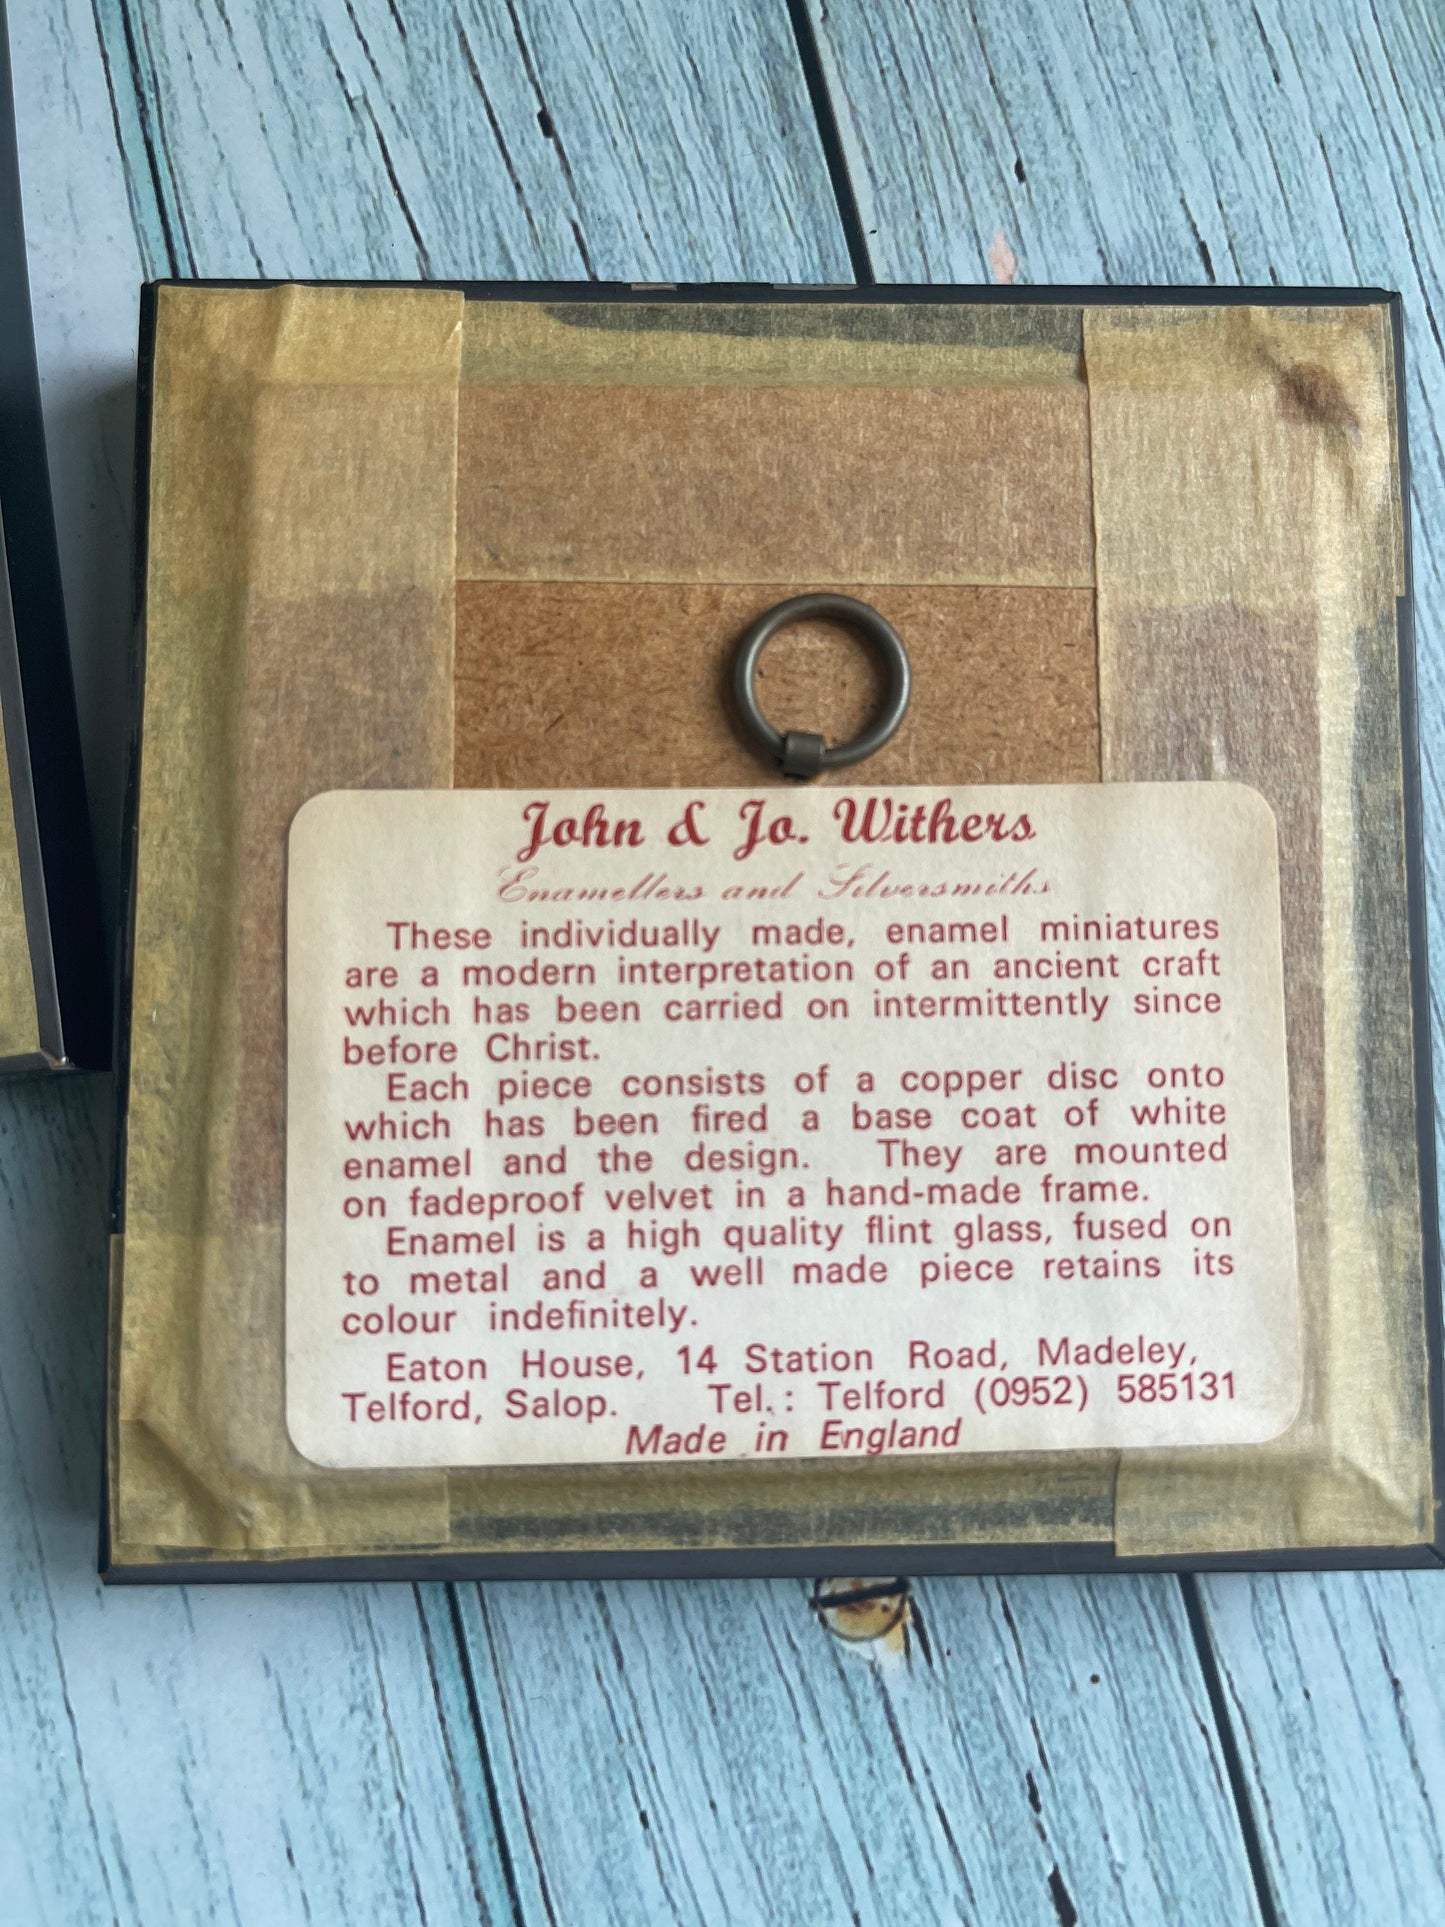 John & Jo. Withers
Enamellers and Silversmiths
These individually made, enamel miniatures
are a modern interpretation of an ancient craft
which has been carried on intermittently since
before Christ.
Each piece consists of a copper disc onto
which has been fired a base coat of white
enamel and the design. They are mounted
on fadeproof velvet in a hand-made frame.
Enamel is a high quality flint glass, fused on
to metal and a well made piece retains its
colour indefinitely.
Eaton House, 14 Station Road, Madeley,
Telford, Salop. Tel.: Telford (0952) 585131
Made in England